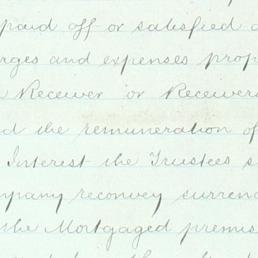 paid off or satisfied
and expenses prop
Receiver or Receivers
the remuneration of
Interest the Trustees s
reconvey surren
the Mortgaged premis